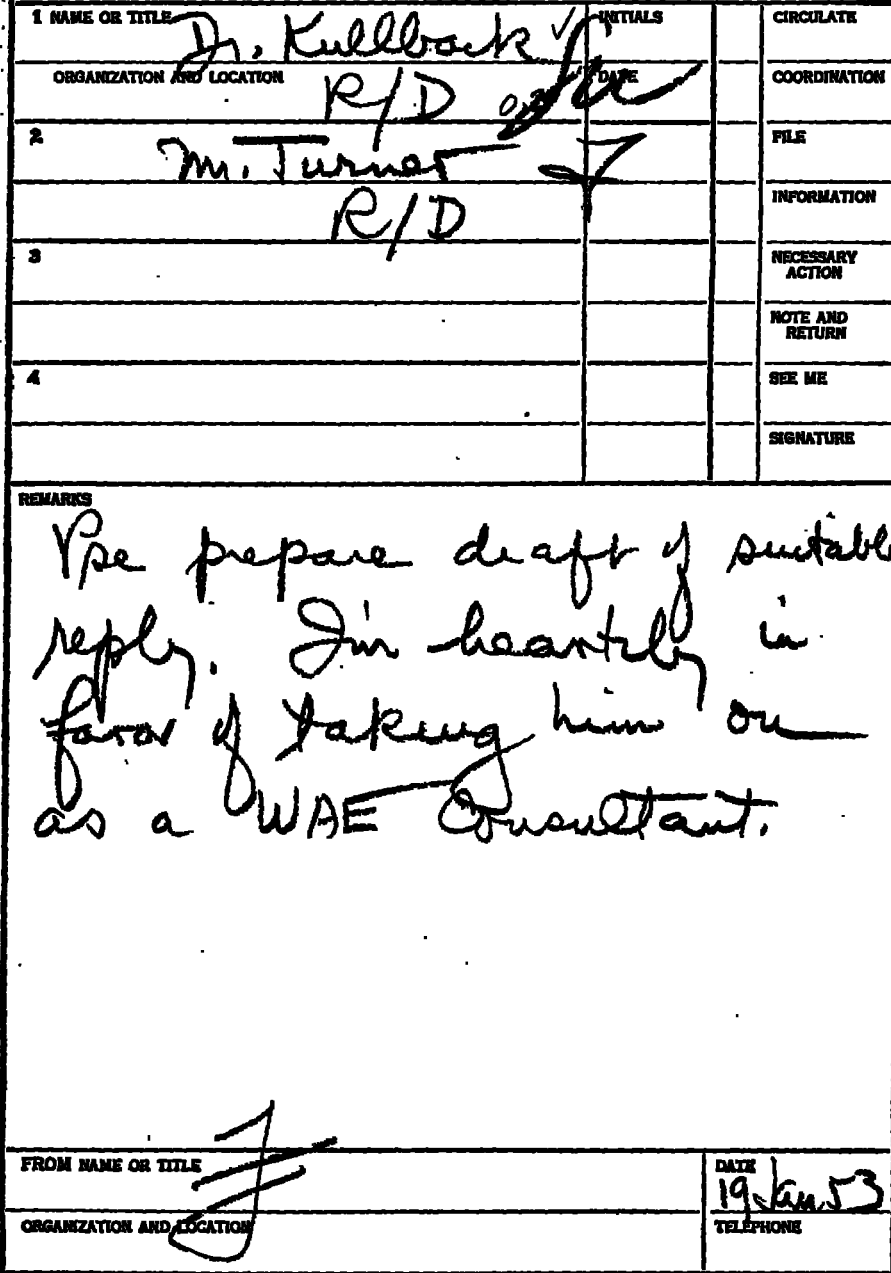 1 NAME OR TITLE INITIALS CIRCULATE
Dr. Kullback ✓
ORGANIZATION AND LOCATION DATE COORDINATION
R/D
2 FILE
Mr. Turner
INFORMATION
R/D
3 NECESSARY ACTION
NOTE AND RETURN
4 SEE ME
SIGNATURE
REMARKS
Pse prepare draft of suitable
reply. I'm heartily in
favor of taking him on
as a WAE Consultant.
FROM NAME OR TITLE DATE
F 19 Jan. 53
ORGANIZATION AND LOCATION TELEPHONE